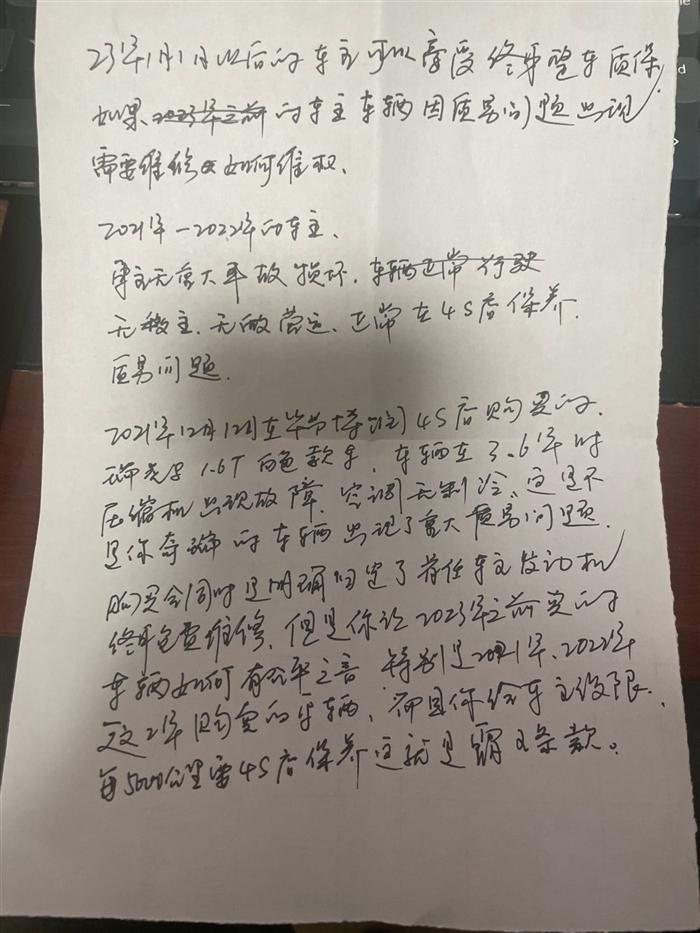 23年1月1日以后的车主可以享受终身整车质保
如果2023年之前的车主车辆因质易问题出现
需要维修如何维权、
2021年-2022年的车主、
车主无重大事故损坏、车辆正常行驶
无营运、正常在4S店保养、
质易问题、
2021年12月12日在毕节4S店购买的、
瑞虎8 1.6T白色款车,车辆在3.6年时
压缩机出现故障、空调无制冷、这是不
是你奇瑞的车辆出现了重大质易问题、
购买合同时是明确归定了首任车主发动机
终身免费维修、但是你论2023年之前卖的
车辆如何有公平之言 特别是2021年、2022年
这2年购买的车辆、而且你给车主设限、
每5000公里需4S店保养这就是霸王条款。